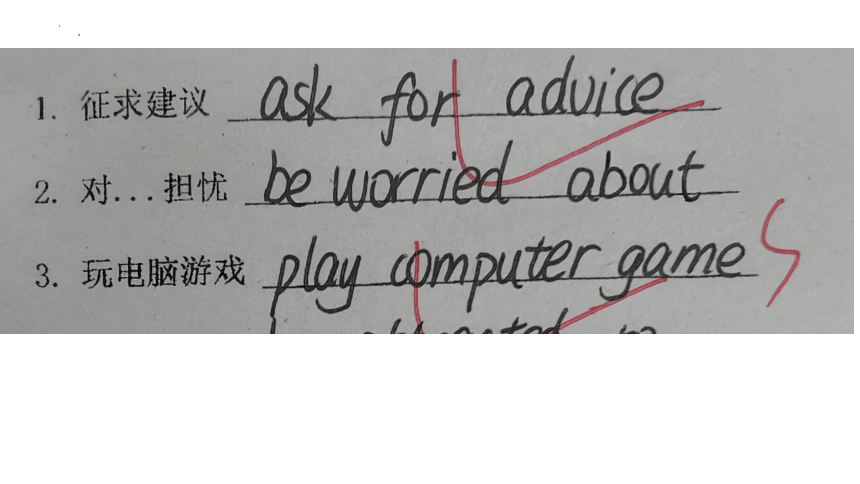 1. 征求建议 ask for advice
2. 对...担忧 be worried about
3. 玩电脑游戏 play computer game s